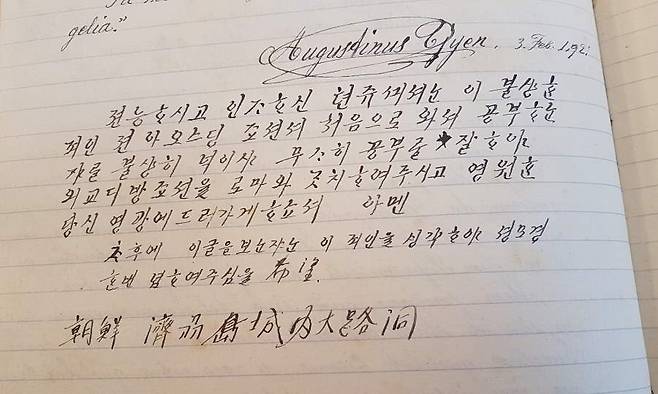 gelia."
Augustinus Tyen. 3. Feb. 192
전능ᄒᆞ시고 인ᄌᆞᄒᆞ신 텬쥬셔ᄂᆞᆫ 이 불샹ᄒᆞᆫ
죄인 젼 아오스딩 조션셔 처음으로 와셔 공부ᄒᆞᄂᆞᆫ
쟈를 불샹히 녁이샤 무ᄉᆞ히 공부를 잘ᄒᆞ야
외교디방조션을 로마와 ᄀᆞᆺ치ᄒᆞ여주시고 영원ᄒᆞᆫ
당신 영광에 드러가게ᄒᆞ쇼셔 아멘
후에 이글을보ᄂᆞᆫ쟈ᄂᆞᆫ 이 죄인을 싱각ᄒᆞ야 셩모경
ᄒᆞᆫ번 념ᄒᆞ여주심을 希望
朝鮮 濟州島城内大路洞